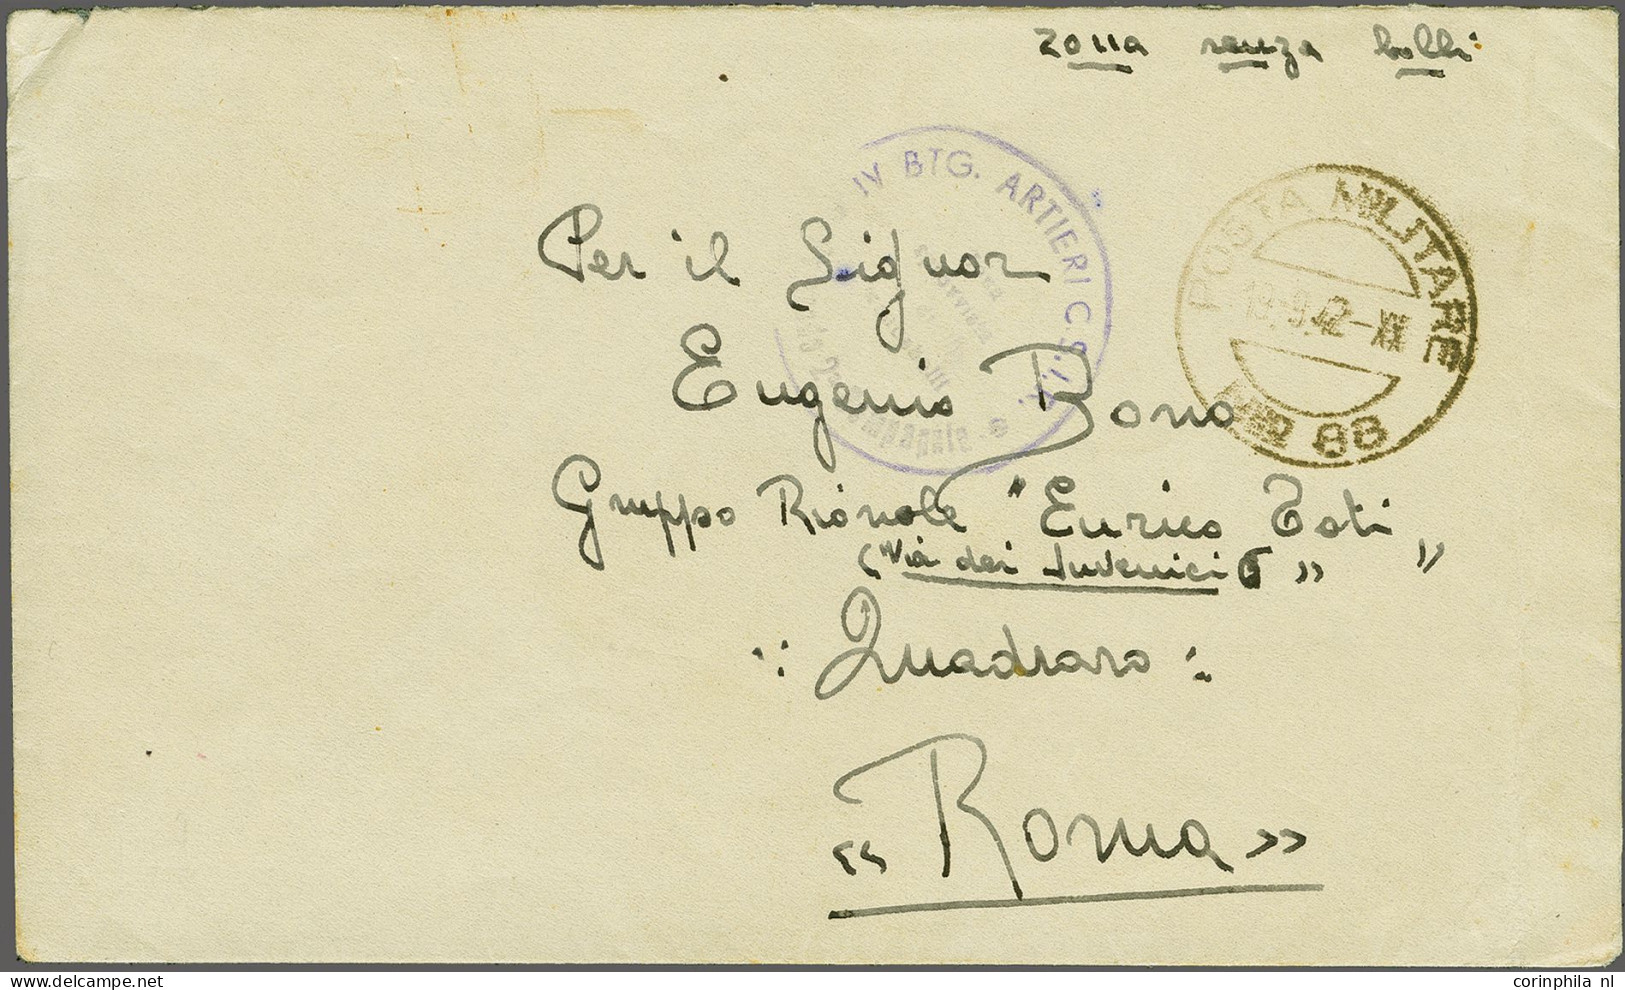 zona senza bolli
IV BTG. ARTIERI C.S.I.R.
POSTA MILITARE
19.9.42-XX
N° 88
Per il Signor
Eugenio Bono
Gruppo Rionale "Enrico Toti"
("Via dei Juvenici 6")
: Quadraro :
« Roma »
corinphila nl